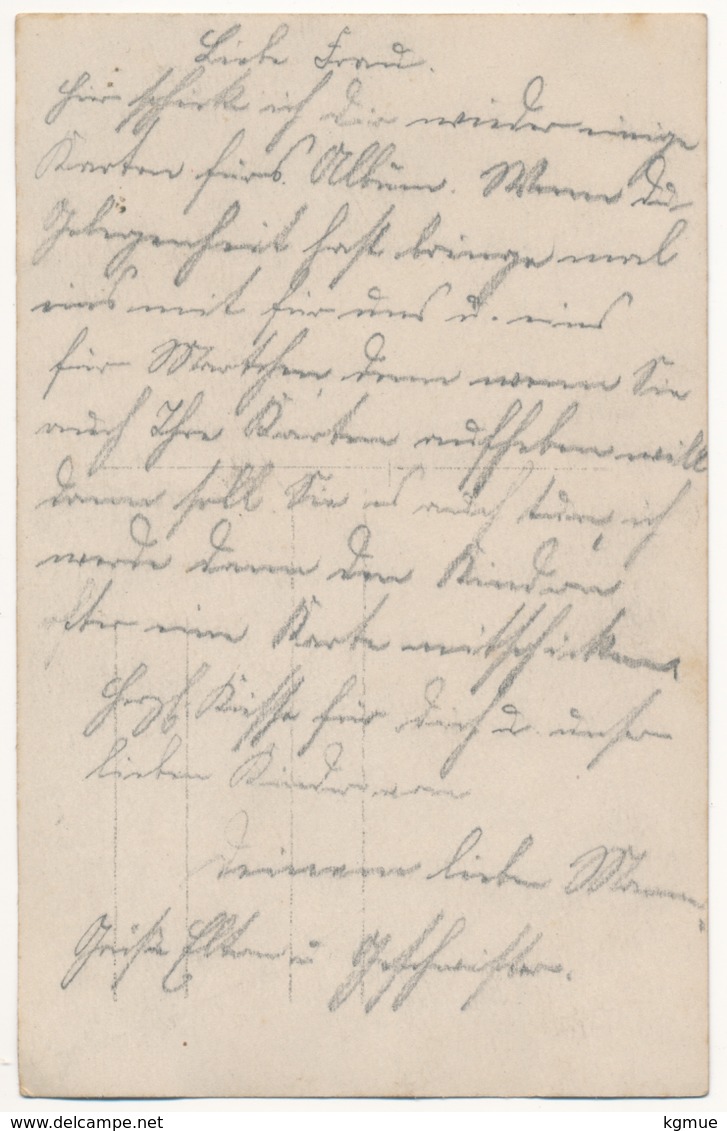 Liebe Frau.
Hier schick ich Dir wieder einige
Karten fürs Album. Wenn Du
Gelegenheit hast bringe mal
eins mit für uns u. eins
für Martchen denn wenn Sie
auch Ihre Karten aufheben will
dann soll Sie es auch tun, ich
werde dann den Kindern
öfter eine Karte mitschicken.
Herzl. Küsse für Dich u. unsern
lieben Kindern von
Deinem lieben Mann.
Grüße Eltern u Geschwister.
kgmue
www.delcampe.net